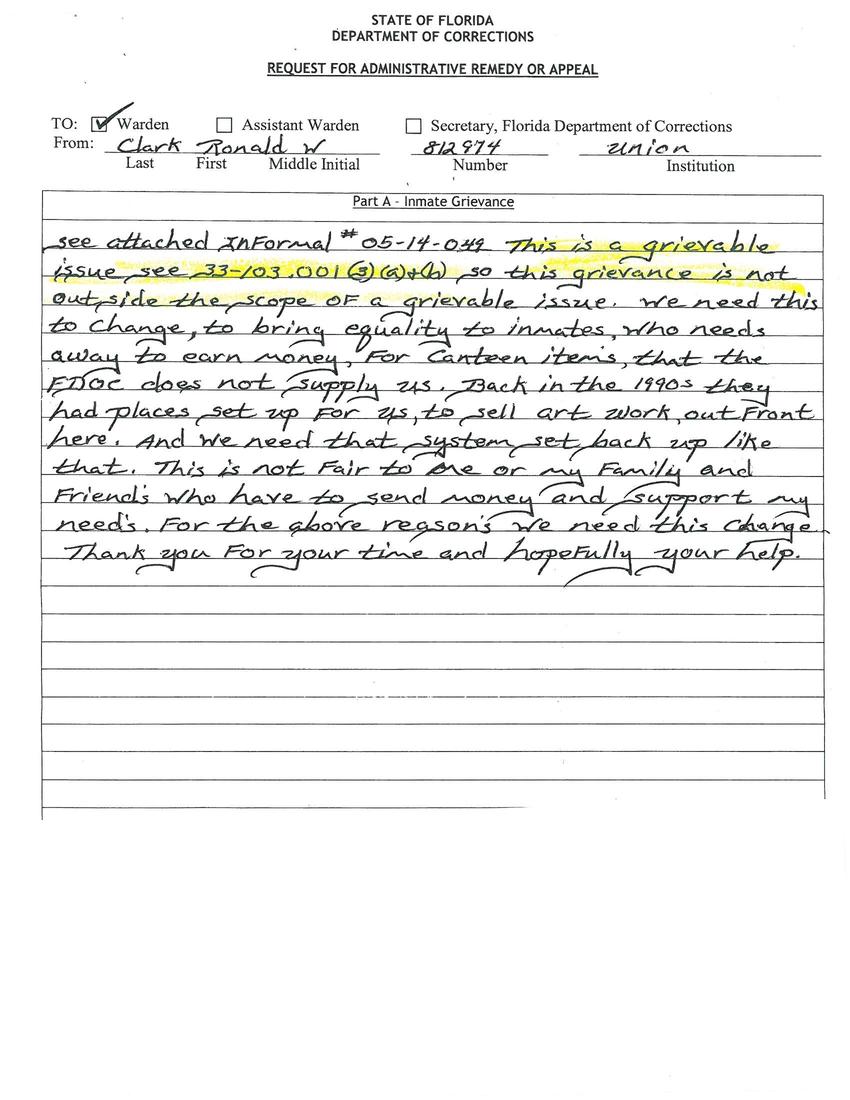 STATE OF FLORIDA
DEPARTMENT OF CORRECTIONS
REQUEST FOR ADMINISTRATIVE REMEDY OR APPEAL
TO: Warden Assistant Warden Secretary, Florida Department of Corrections
From: Clark Ronald W 812974 Union
Last First Middle Initial Number Institution
Part A - Inmate Grievance
see attached InFormal # 05-14-049 This is a grievable
issue see 33-103.001 (3)(a)+(h), so this grievance is not
out,side the scope OF a grievable issue. We need this
to Change, to bring equality to inmates, Who needs
away to earn money, For Canteen item's, that the
FDOC does not supply us. Back in the 1990s they
had places set up For us, to sell art work, out Front
here. And We need that system set back up like
that. This is not Fair to me or my Family and
Friend's Who have to send money and support my
need's. For the above reason's We need this Change
Thank you For your time and hopeFully your help.